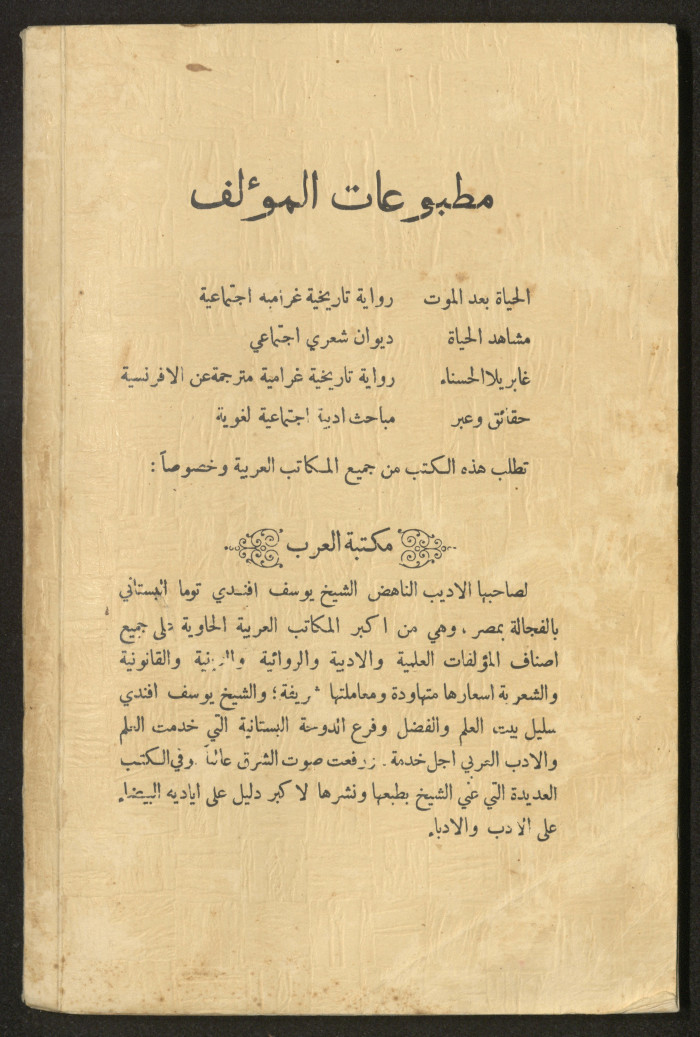 مطبوعات المؤلف
الحياة بعد الموت رواية تاريخية غرامية اجتماعية
مشاهد الحياة ديوان شعري اجتماعي
غابريلا الحسناء رواية تاريخية غرامية مترجمة عن الافرنسية
حقائق وعبر مباحث ادبية اجتماعية لغوية
تطلب هذه الكتب من جميع المكاتب العربية وخصوصاً :
مكتبة العرب
لصاحبها الاديب الناهض الشيخ يوسف افندي توما البستاني
بالفجالة بمصر ، وهي من اكبر المكاتب العربية الحاوية على جميع
اصناف المؤلفات العلمية والادبية والروائية والدينية والقانونية
والشعرية اسعارها متهاودة ومعاملتها شريفة ؛ والشيخ يوسف افندي
سليل بيت العلم والفضل وفرع الدوحة البستانية التي خدمت العلم
والادب العربي اجل خدمة ورفعت صوت الشرق عالياً وفي الكتب
العديدة التي عني الشيخ بطبعها ونشرها لاكبر دليل على اياديه البيضاء
على الادب والادباء